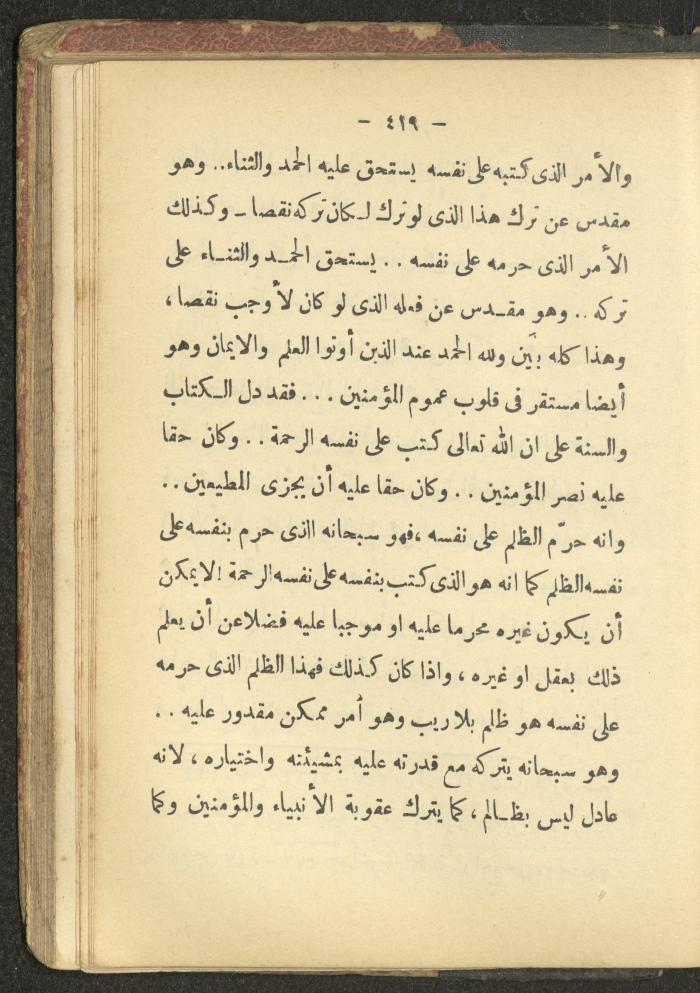 — ٤١٩ —
والأمر الذى كتبه على نفسه يستحق عليه الحمد والثناء.. وهو
مقدس عن ترك هذا الذى لو ترك لكان تركه نقصا ـ وكذلك
الأمر الذى حرمه على نفسه .. يستحق الحمد والثناء على
تركه .. وهو مقدس عن فعله الذى لو كان لأوجب نقصا ،
وهذا كله بيّن ولله الحمد عند الذين أوتوا العلم والايمان وهو
أيضا مستقر فى قلوب عموم المؤمنين ... فقد دل الكتاب
والسنة على ان الله تعالى كتب على نفسه الرحمة .. وكان حقا
عليه نصر المؤمنين .. وكان حقا عليه أن يجزى المطيعين ..
وانه حرّم الظلم على نفسه ، فهو سبحانه الذى حرم بنفسه على
نفسه الظلم كما انه هو الذى كتب بنفسه على نفسه الرحمة ! لا يمكن
أن يكون غيره محرما عليه او موجبا عليه فضلا عن أن يعلم
ذلك بعقل او غيره ، واذا كان كذلك فهذا الظلم الذى حرمه
على نفسه هو ظلم بلا ريب وهو أمر ممكن مقدور عليه ..
وهو سبحانه يتركه مع قدرته عليه بمشيئته واختياره ، لانه
عادل ليس بظالم ، كما يترك عقوبة الأنبياء والمؤمنين وكما